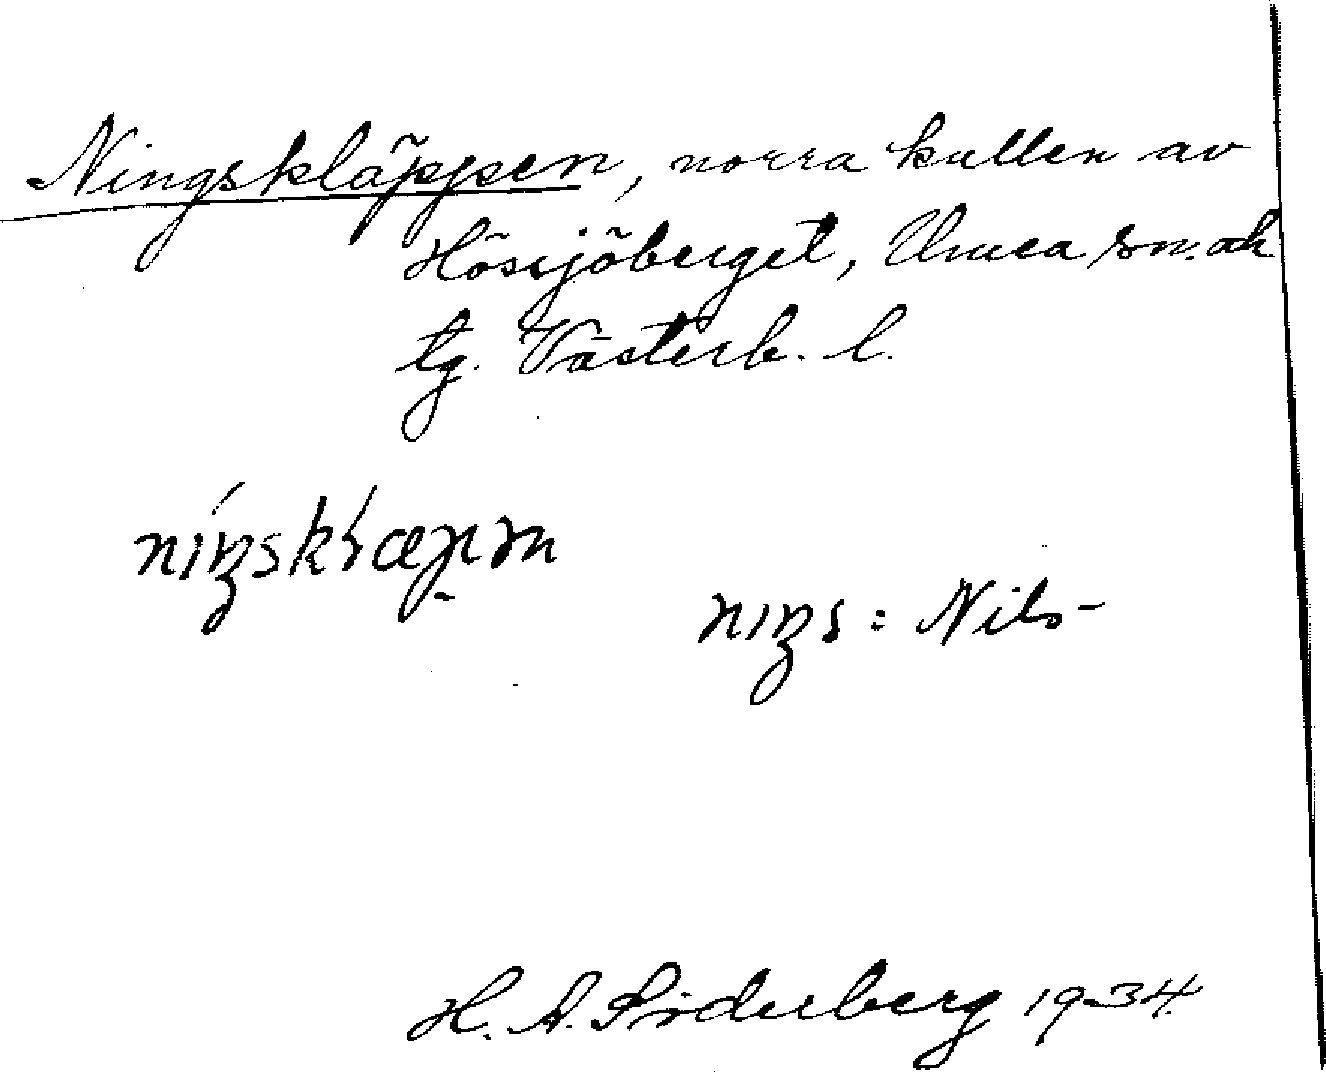 Ningskläppen, norra kullen av
Hössjöberget, Umeå sn. ah
tg. Västerb. l.
nigs: Nils-
H. A. Söderberg 1934